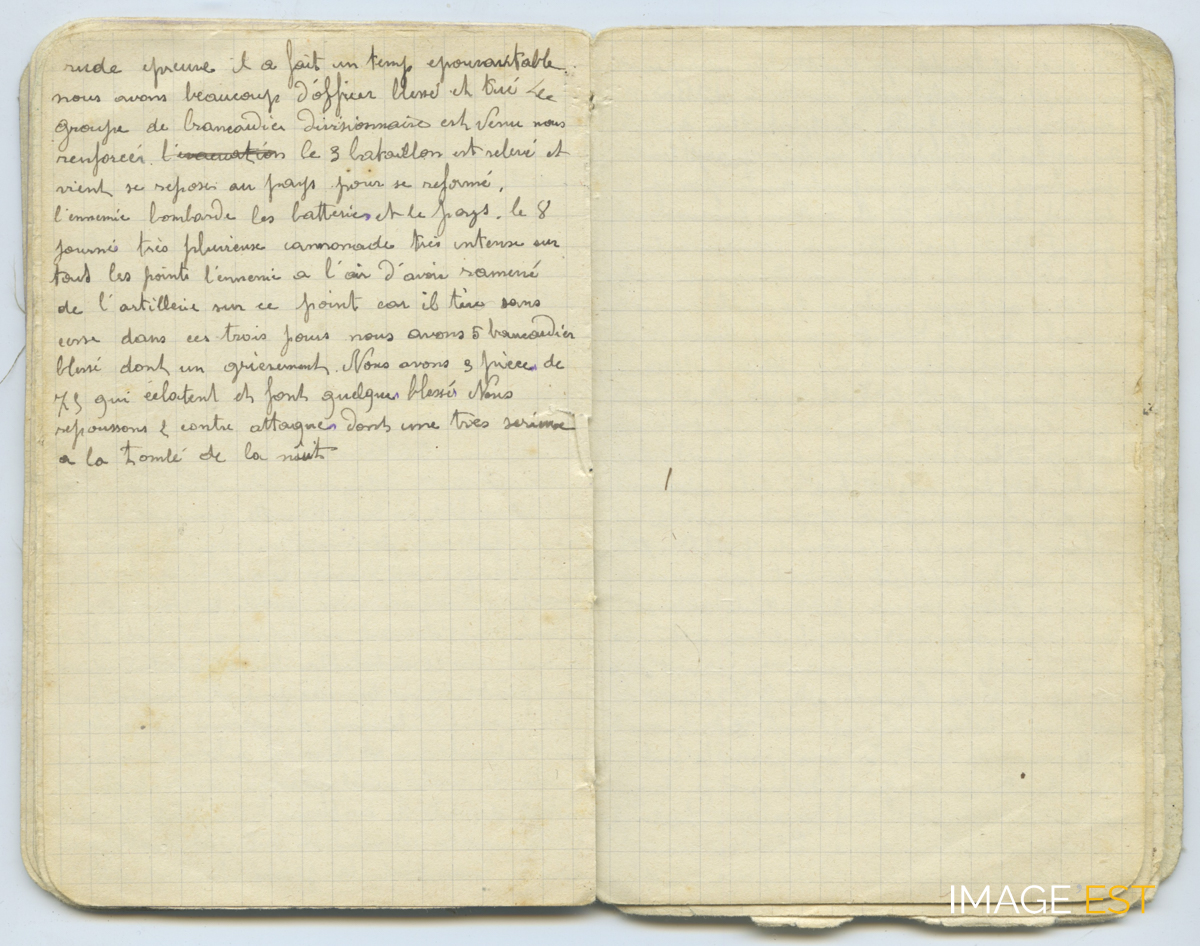 rude epreuve il a fait un temp epouvantable.
nous avons beaucoup d'officier blessé et tué Le
groupe de brancardier divisionnaire est venu nous
renforcer. l'evacuation le 3 bataillon est relevé et
vient se reposer au pays pour se reformé.
l'ennemie bombarde les batteries et le pays. le 8
journé très pluvieuse cannonade très intense sur
tout les points l'ennemie a l'air d'avoir ramené
de l'artillerie sur ce point car il tire sans
cesse dans ces trois jours nous avons 5 brancardier
blessé dont un grièvement. Nous avons 3 pièces de
75 qui éclatent et font quelques blessés Nous
repoussons 2 contre attaques dont une très serieuse
a la tombé de la nuit
IMAGE EST